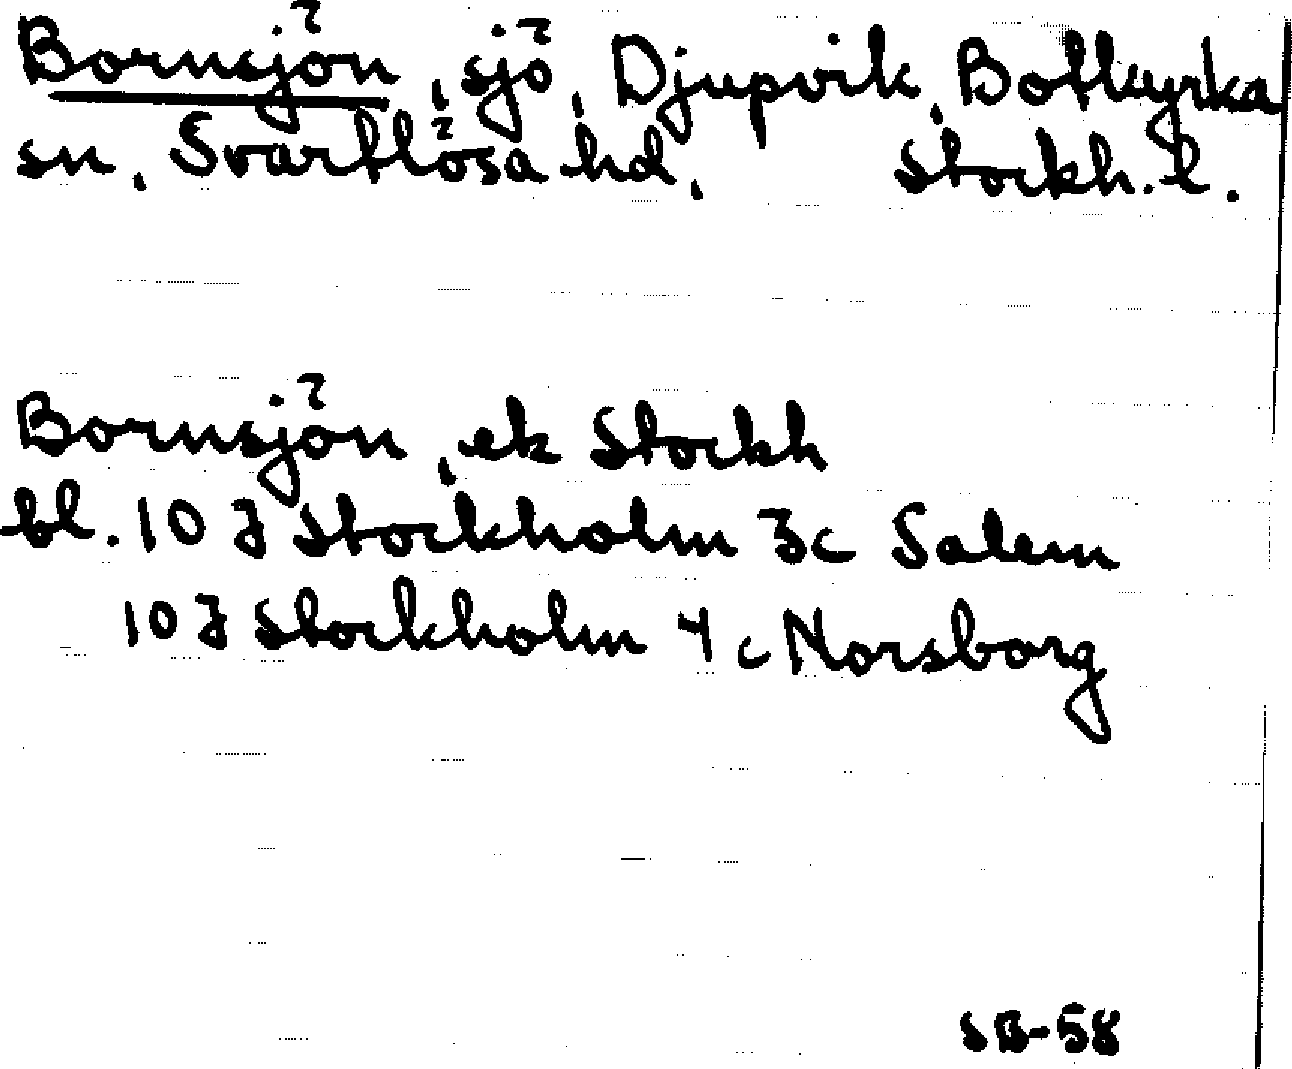 Bornsjön, sjö, Djupvik, Botkyrka
sn, Svartlösa hd, Stockh. l.
Bornsjön, ek Stockh
bl. 10 I Stockholm 3c Salem
10 I Stockholm 4c Norsborg
SB-58